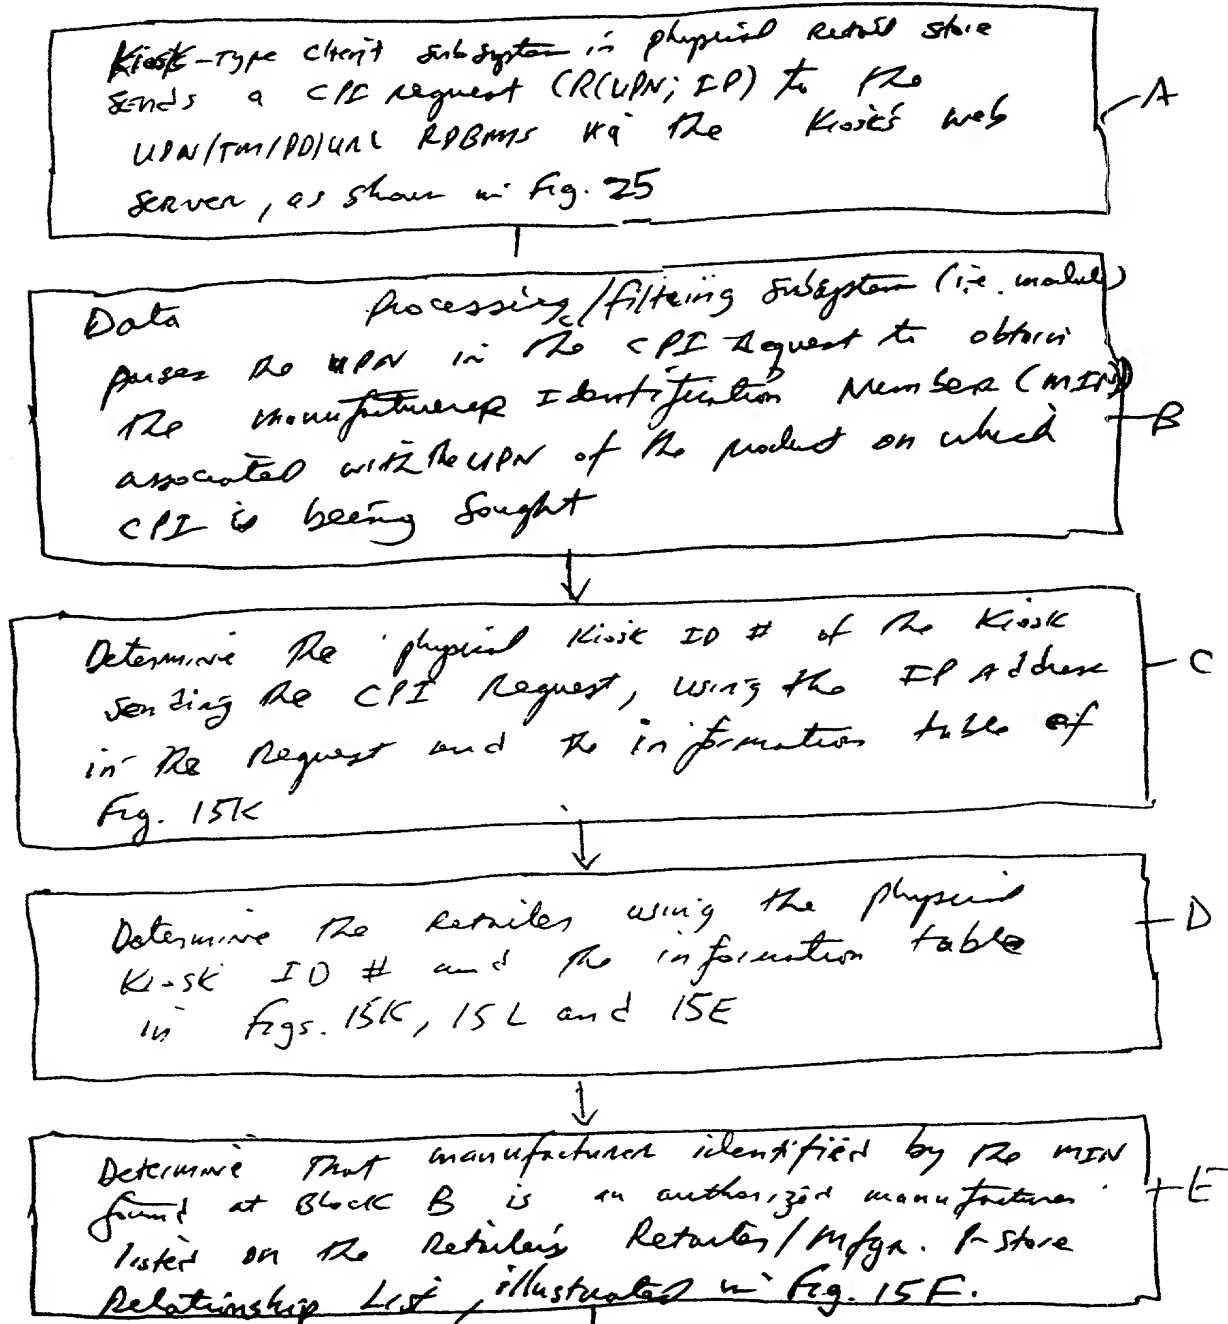 Kiosk-Type client subsystem in physical Retail store
sends a CPI request (R(UPN; IP) to the
UPN/TM/PD/URL RDBMS via the Kiosk's web
server, as shown in Fig. 25
A
Data Processing/filtering subsystem (i.e. module)
parses the UPN in the CPI Request to obtain
the manufacturer Identification Number (MIN)
associated with the UPN of the product on which
CPI is being sought
B
Determine the physical Kiosk ID # of the Kiosk
sending the CPI Request, using the IP Address
in the Request and the information table of
Fig. 15K
C
Determine the Retailer using the physical
Kiosk ID # and the information table
in Figs. 15K, 15L and 15E
D
Determine that manufacturer identified by the MIN
found at Block B is an authorized manufacturer
listed on the Retailer's Retailer/Mfgr. P-Store
Relationship List, illustrated in Fig. 15F.
E